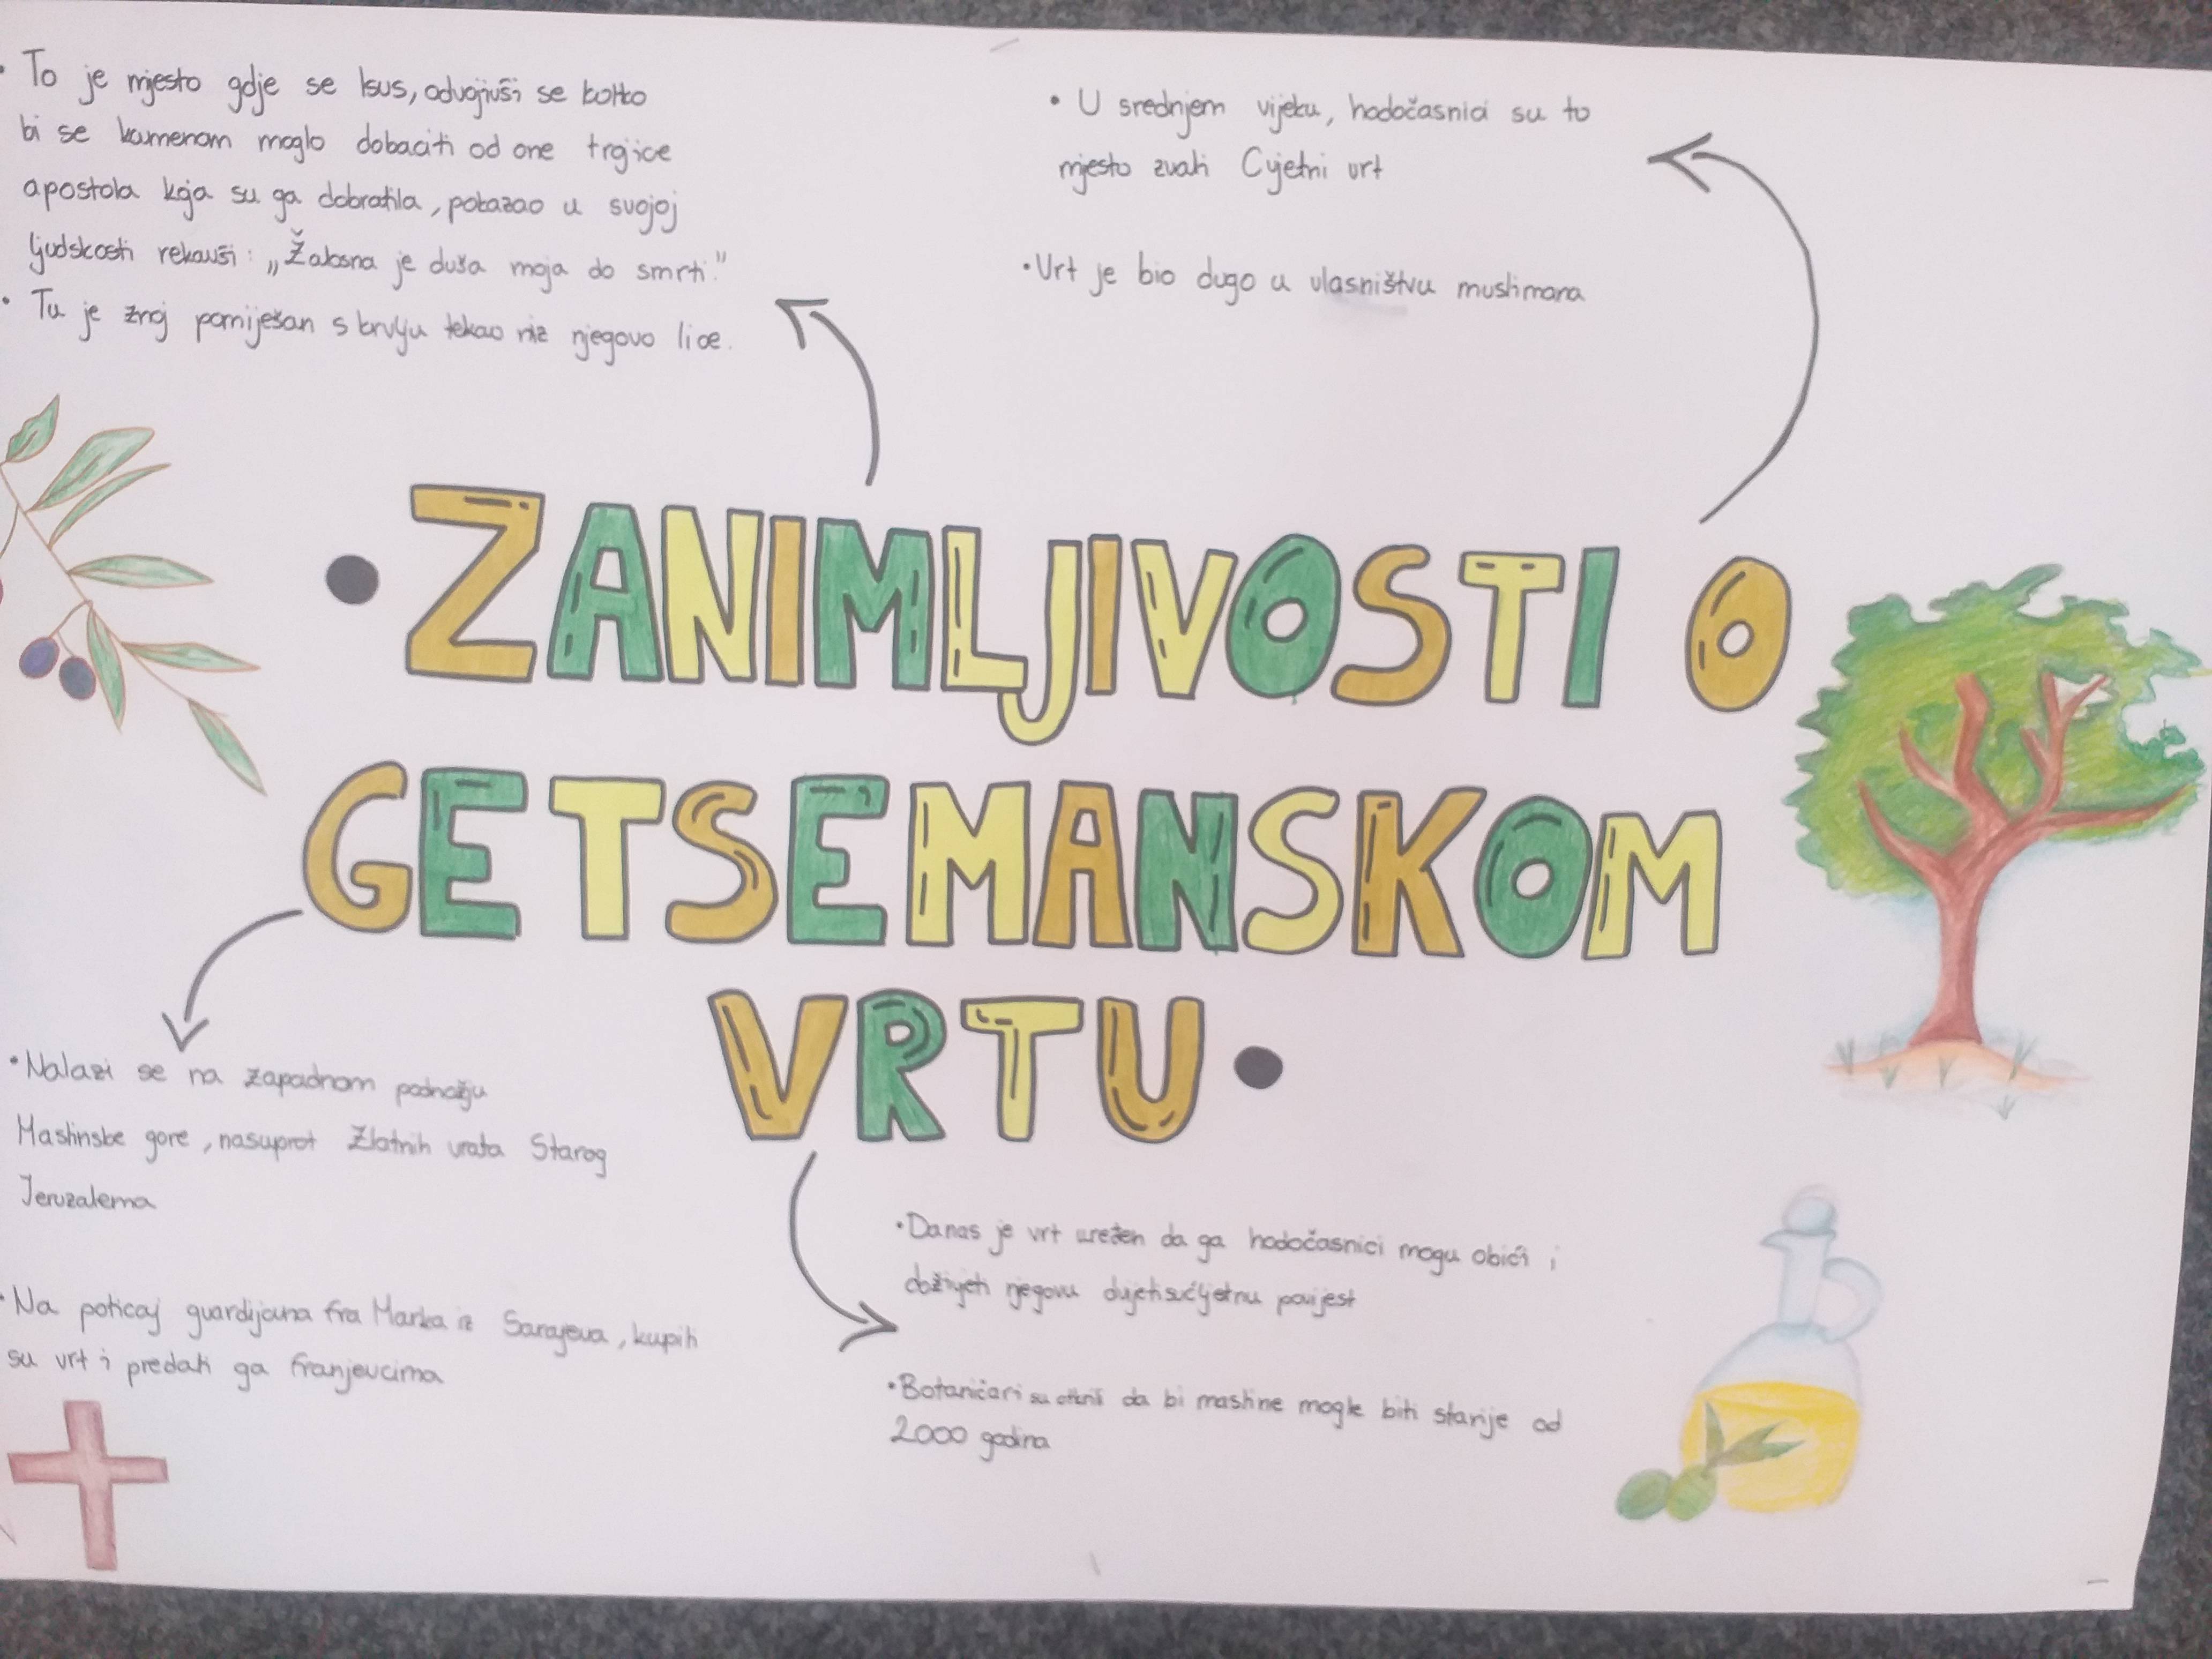 • To je mjesto gdje se Isus, odvojivši se koliko
bi se kamenom moglo dobaciti od one trojice
apostola koja su ga dobratila, pokazao u svojoj
ljudskosti rekavši: „Žalosna je duša moja do smrti."
• Tu je znoj pomiješan s krvlju tekao niz njegovo lice.
• U srednjem vijeku, hodočasnici su to
mjesto zvali Cvjetni vrt
• Vrt je bio dugo u vlasništvu muslimana
• ZANIMLJIVOSTI O
GETSEMANSKOM
VRTU •
• Nalazi se na zapadnom podnožju
Maslinske gore, nasuprot Zlatnih vrata Starog
Jeruzalema
• Na poticaj guardijana fra Marka iz Sarajeva, kupili
su vrt i predali ga franjevcima
• Danas je vrt uređen da ga hodočasnici mogu obići i
doživjeti njegovu povijest
• Botaničari su otkrili da bi masline mogle biti starije od
2000 godina